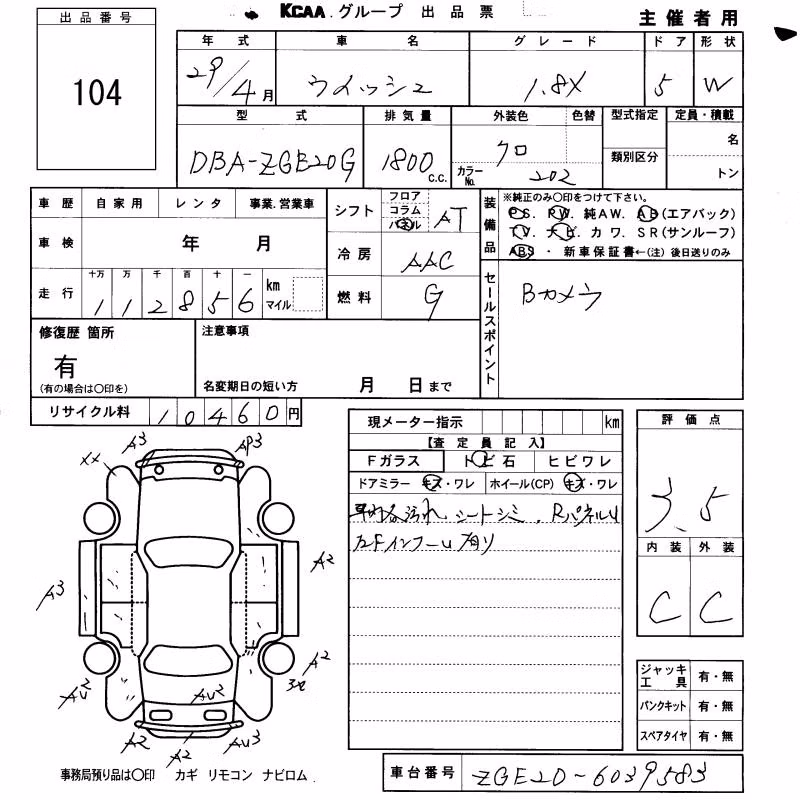 KCAA.グループ 出品票
主催者用
出品番号
104
年式 車名 グレード ドア 形状
29/4月 ウィッシュ 1.8X 5 W
型式 排気量 外装色 色替 型式指定 定員・積載
DBA-ZGE20G 1800 c.c. クロ カラーNo. 202 類別区分 名 トン
車歴 自家用 レンタ 事業.営業車
車検 年 月
走行 十万 万 千 百 十 一
112856 km マイル
シフト フロア コラム パネル AT
冷房 AAC
燃料 G
装備品
※純正のみ○印をつけて下さい。
PS. PW. 純AW. AB(エアバック)
TV. ナビ. カワ. SR(サンルーフ)
ABS・新車保証書←(注)後日送りのみ
セールスポイント
Bカメラ
修復歴 箇所
有
(有の場合は○印を)
注意事項
名変期日の短い方 月 日まで
リサイクル料 10460円
現メーター指示 km
【査定員記入】
Fガラス トビ石 ヒビワレ
ドアミラー キズ・ワレ ホイール(CP) キズ・ワレ
汚れ、シートシミ、RパネルU
評価点
3.5
内装 外装
C C
A3 AP3
XX
A2
A3
AU2 A2
AU2
A2 A2 AU3
ジャッキ工具 有・無
パンクキット 有・無
スペアタイヤ 有・無
事務局預り品は○印 カギ リモコン ナビロム.
車台番号 ZGE20-6039583